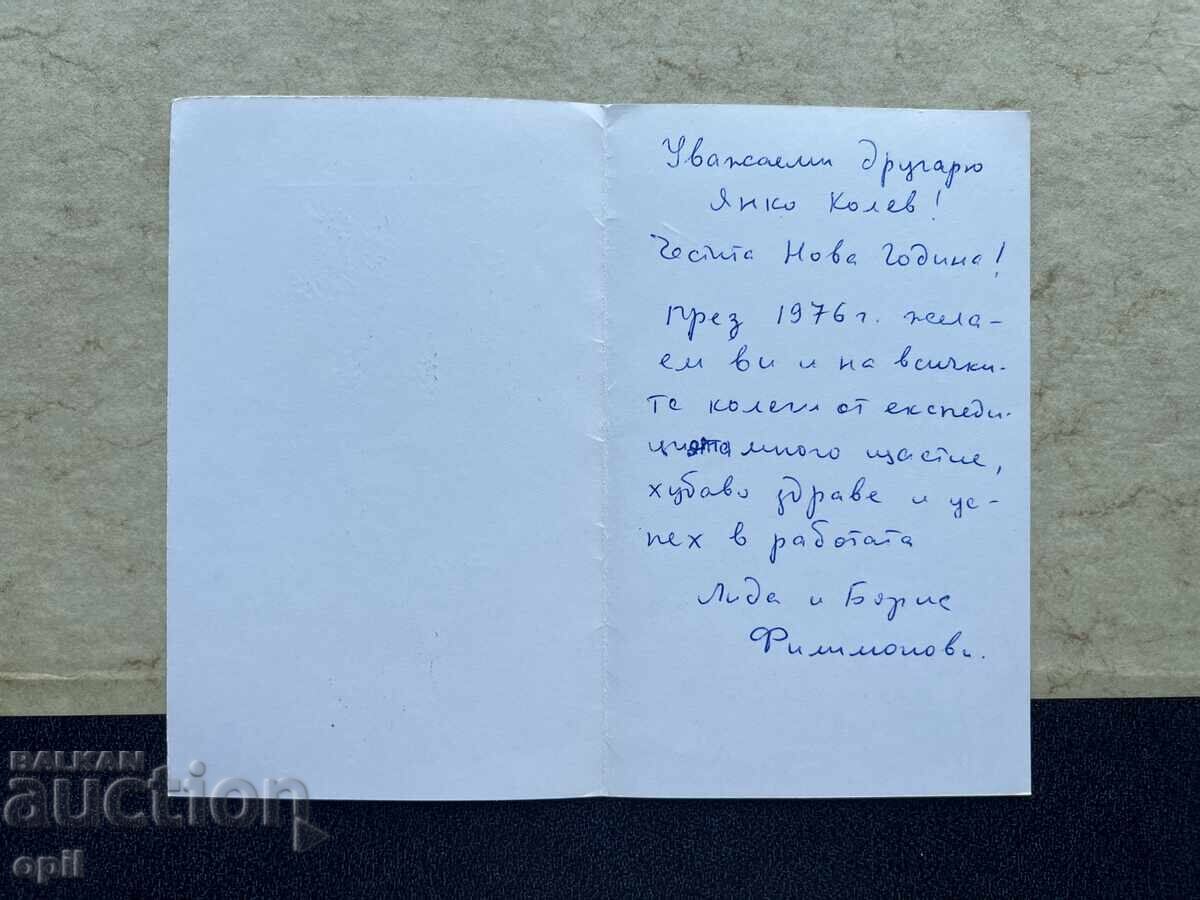 Уважаеми другарю
Янко Колев!
Честита Нова Година!
През 1976 г. жела-
ем ви и на всички-
те колеги от експеди-
цията много щастие,
хубаво здраве и ус-
пех в работата
Лида и Борис
Филимонови.
BALKAN
auction
opil